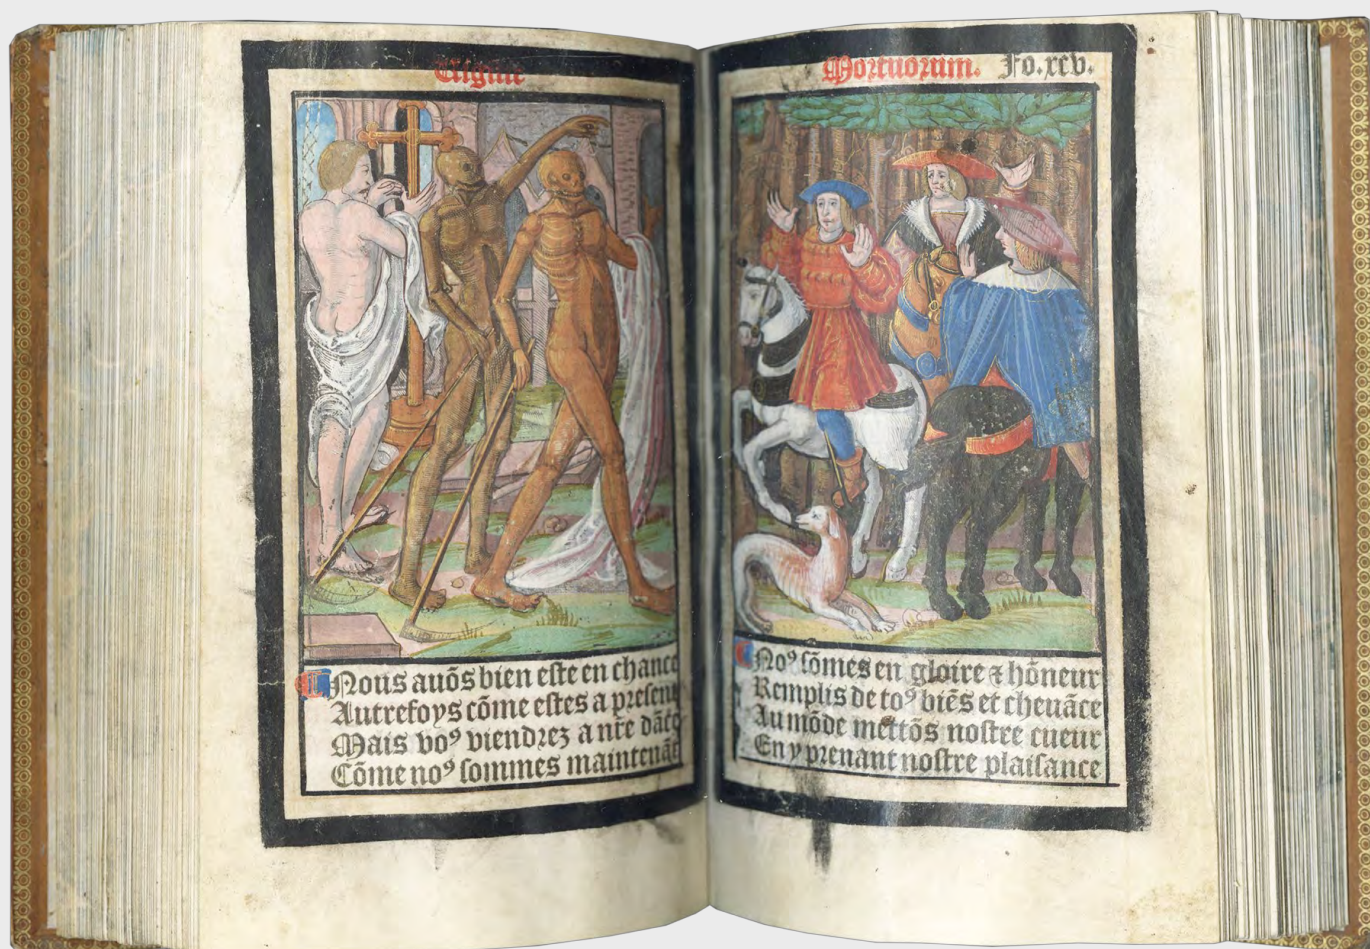 Vigilie
Nous auōs bien este en chance
Autrefoys cōme estes a present
Mais voꝰ viendrez a nr̄e dāce
Cōme noꝰ sommes maintenāt
Mortuorum. Fo.xcv.
Noꝰ sōmes en gloire ⁊ hōneur
Remplis de toꝰ biēs et cheuāce
Au mōde mettōs nostre cueur
En y prenant nostre plaisance